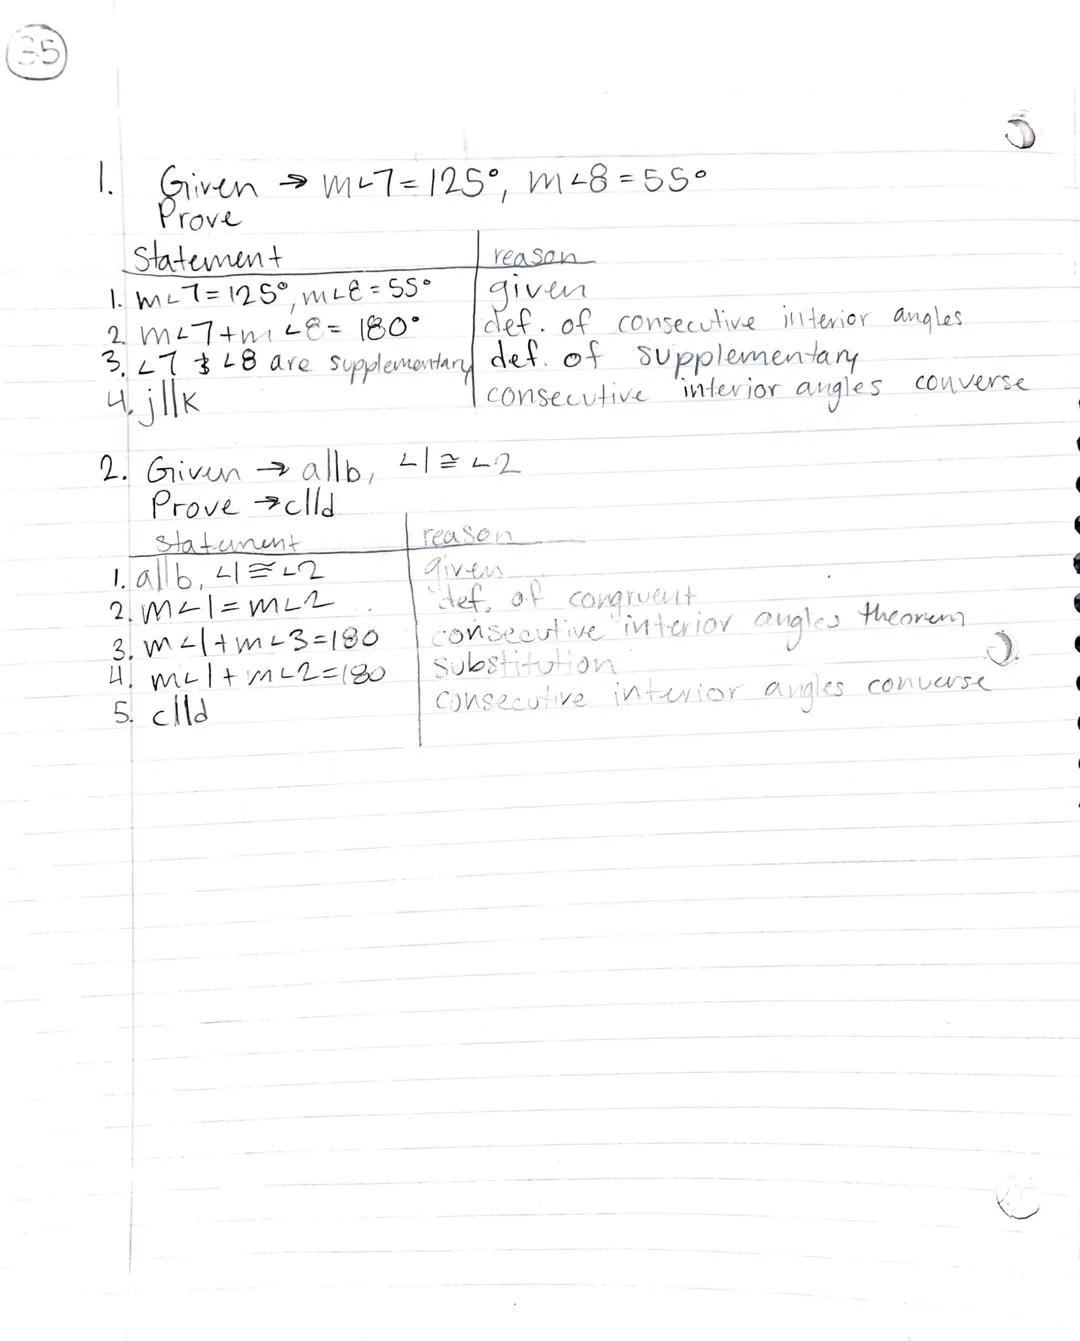 35
1. Given → m∠7 = 125°, m∠8 = 55°
Prove
Statement reason
1. m∠7 = 125°, m∠8 = 55° given
2. m∠7 + m∠8 = 180° def. of consecutive interior angles
3. ∠7 & ∠8 are supplementary def. of supplementary
4. j||k consecutive interior angles converse
2. Given → a||b, ∠1 ≅ ∠2
Prove → c||d
statement reason
1. a||b, ∠1 ≅ ∠2 given
2. m∠1 = m∠2 def. of congruent
3. m∠1 + m∠3 = 180 consecutive interior angles theorem
4. m∠1 + m∠2 = 180 substitution
5. c||d consecutive interior angles converse